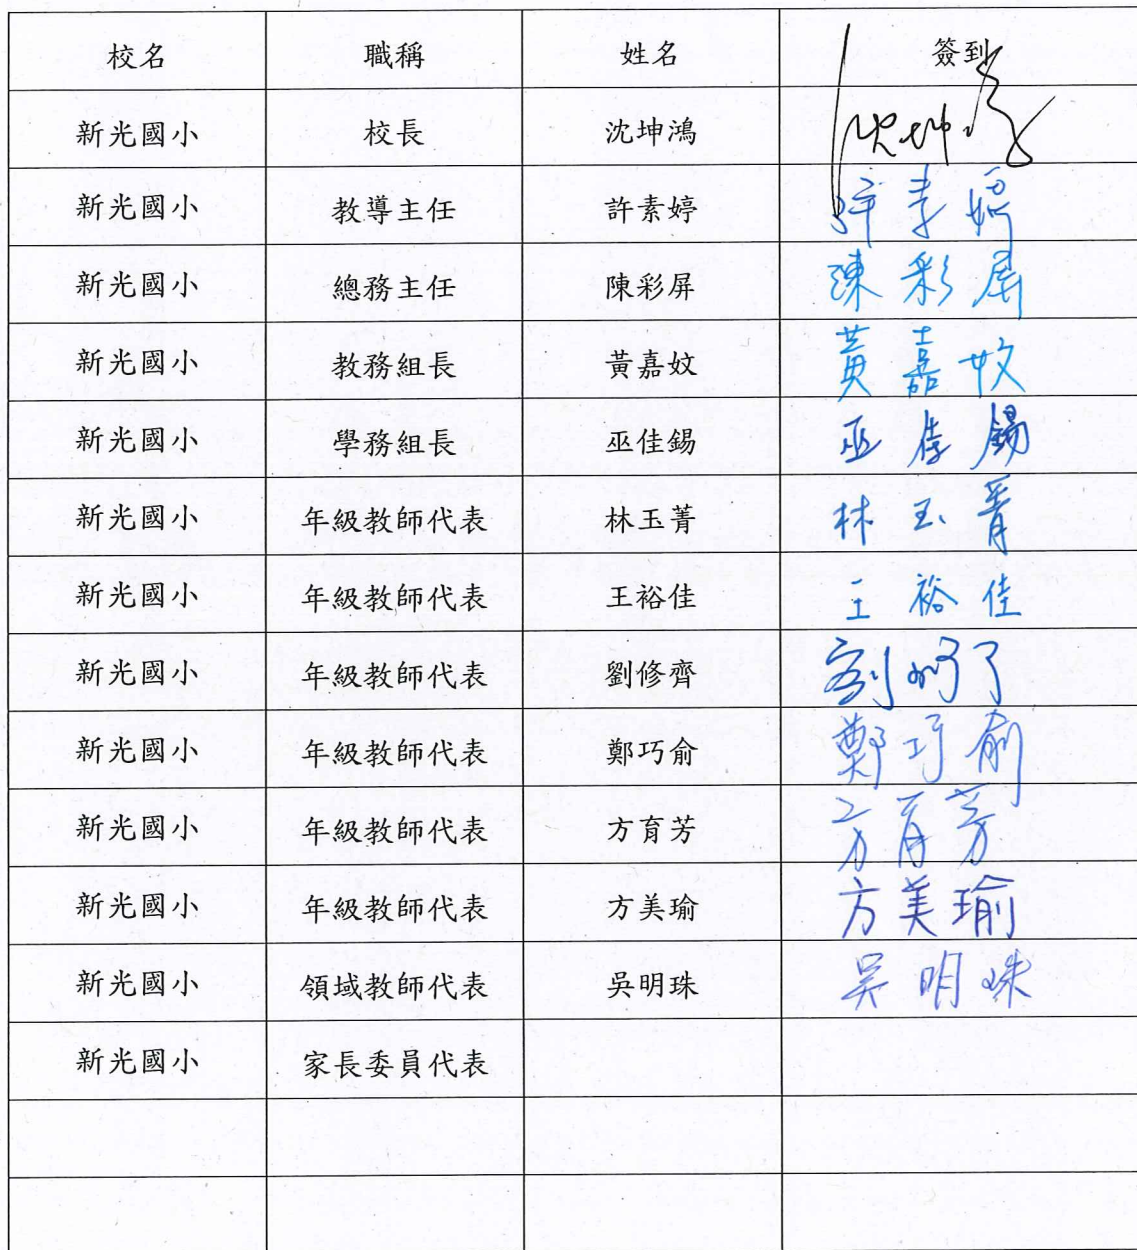 校名 職稱 姓名 簽到
新光國小 校長 沈坤鴻 沈坤鴻
新光國小 教導主任 許素婷 許素婷
新光國小 總務主任 陳彩屏 陳彩屏
新光國小 教務組長 黃嘉妏 黃嘉妏
新光國小 學務組長 巫佳錫 巫佳錫
新光國小 年級教師代表 林玉菁 林玉菁
新光國小 年級教師代表 王裕佳 王裕佳
新光國小 年級教師代表 劉修齊 劉
新光國小 年級教師代表 鄭巧俞 鄭巧俞
新光國小 年級教師代表 方育芳 方育芳
新光國小 年級教師代表 方美瑜 方美瑜
新光國小 領域教師代表 吳明珠 吳明珠
新光國小 家長委員代表